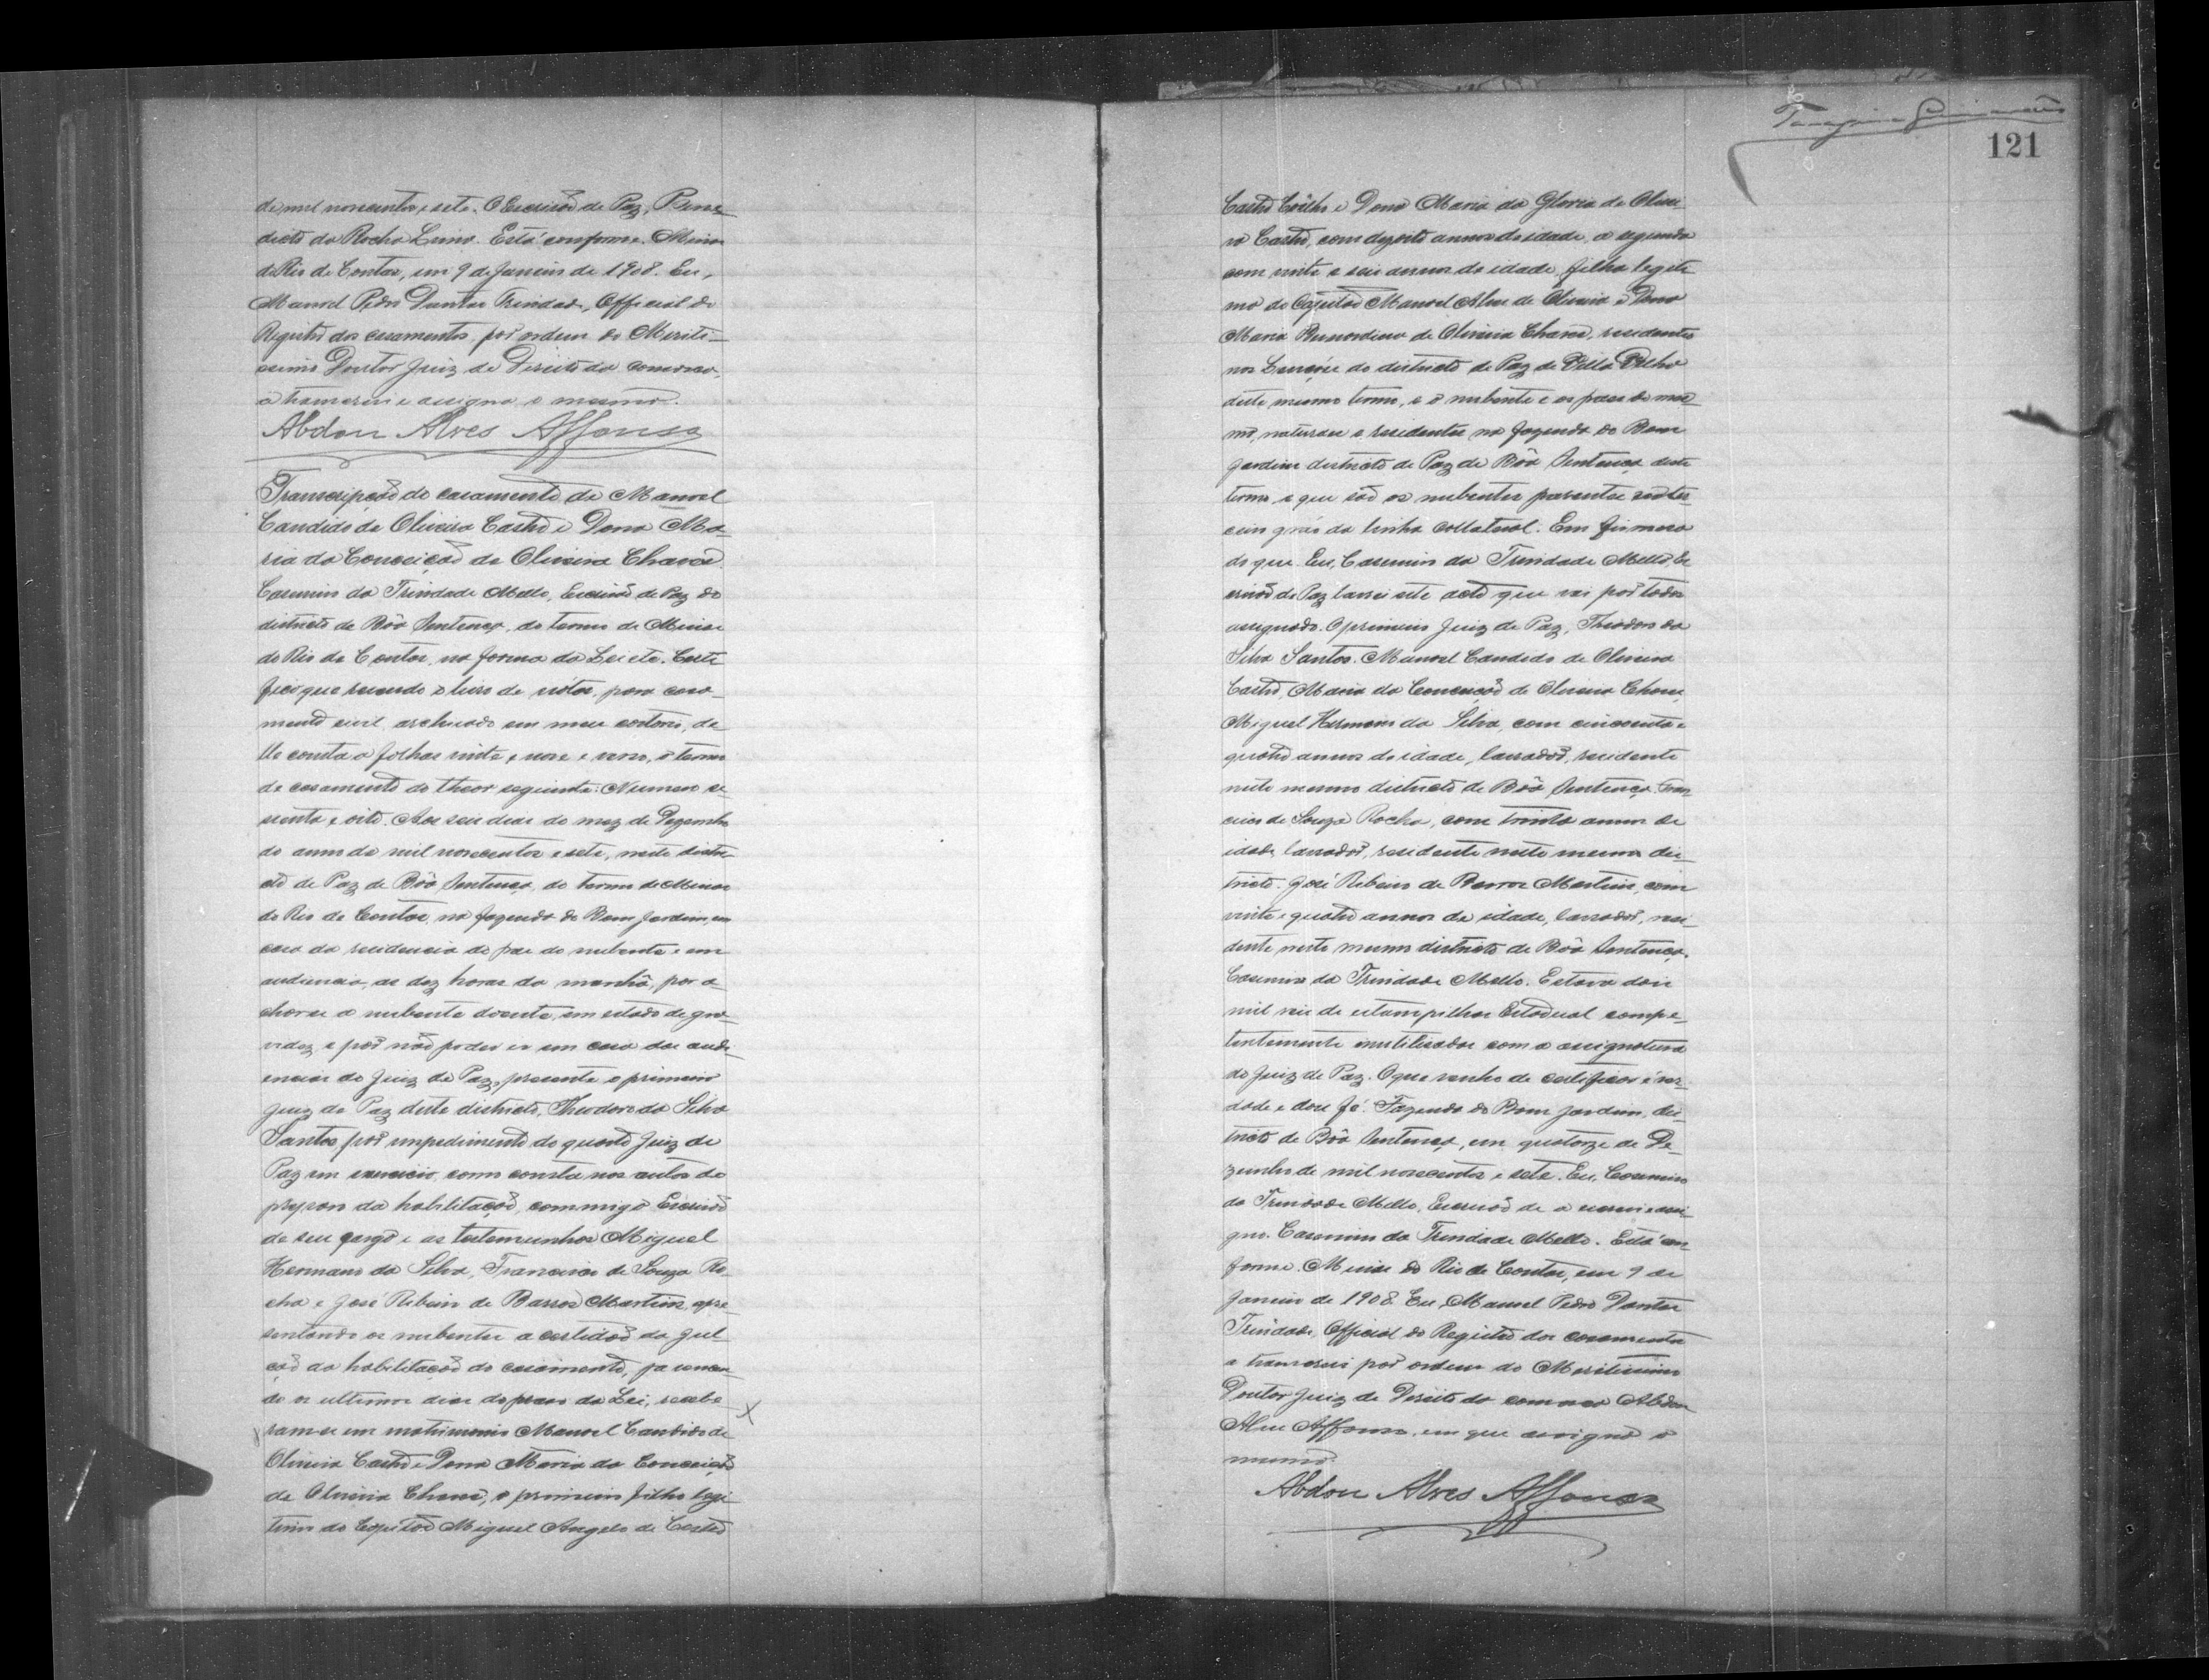 de mil novecentos e sete. O Escrivão de Paz, Bene-
dicto da Rocha Lima. Está conforme. Minas
do Rio de Contas, em 9 de Janeiro de 1908. Eu,
Manoel Pedro Dantas Trindade, Official do
Registro dos casamentos, por ordem do Meriti-
ssimo Doutor Juiz de Direito da comarca,
a transcrevi e assigna o mesmo.
Abdon Alves Affonso
Transcripção do casamento de Manoel
Candido de Oliveira Castro e Dona Ma-
ria da Conceição de Oliveira Chaves.
Casemiro da Trindade Mello, Escrivão de Paz do
districto de Bôa Sentença, do termo de Minas
do Rio de Contas, na forma da Lei etc. Certi
fico que revendo o livro de nótas, para casa-
mento civil archivado em meu cartorio, de-
lle consta a folhas vinte e nove e verso, o termo
de casamento do theor seguinte: Numero se-
ssenta e oito. Aos seis dias do mez de Dezembro
do anno de mil novecentos e sete, neste distri-
cto de Paz de Bôa Sentença, do termo de Minas
do Rio de Contas, na fazenda do Bom Jardim, em
casa da residencia do pae do nubente e em
audiencia, as dez horas da manhã, por a-
char-se a nubente doente, em estado de gra-
videz e por não poder ir em casa das audi-
encias do Juiz de Paz, presente o primeiro
Juiz de Paz deste districto, Theodoro da Silva
Santos, por impedimento do quarto Juiz de
Paz em exercicio, como consta nos autos do
preparo da habilitação, commigo Escrivão
de seu cargo e as testemunhas Miguel
Hermano da Silva, Francisco de Souza Ro-
cha e José Ribeiro de Barros Martins, apre-
sentando os nubentes a certidão da jul-
ção da habilitação do casamento,
de os ultimos dias do praso da Lei, recebe-
ram-se em matrimonio Manoel Candido de
Oliveira Castro e Dona Maria da Conceição
de Oliveira Chaves, o primeiro filho legi-
timo do Capitão Miguel Angelo de Castro
X
121
Castro Coêlho e Dona Maria da Gloria de Olivei-
ra Castro, com dezoito annos de idade, a segunda
com vinte e seis annos de idade, filha legiti
ma do Capitão Manoel Alves de Oliveira e Dona
Maria Bernardina de Oliveira Chaves, residentes
nos Lençóes do districto de Paz de Villa Velha
deste mesmo termo, e o nubente e os paes do mes-
mo, naturaes e residentes na fazenda do Bom
Jardim districto de Paz de Bôa Sentença deste
termo e que são os nubentes parentes no ter-
ceiro gráo da linha collateral. Em firmeza
do que Eu, Casemiro da Trindade Mello, Es
crivão de Paz lavrei este acto que vai por todos
assignado. O primeiro Juiz de Paz, Theodoro da
Silva Santos. Manoel Candido de Oliveira
Castro, Maria da Conceição de Oliveira Chaves,
Miguel Hermano da Silva, com cincoenta e
quatro annos de idade, lavrador, residente
neste mesmo districto de Bôa Sentença. Fran
cisco de Souza Rocha, com trinta annos de
idade, lavrador, residente neste mesmo dis-
tricto. José Ribeiro de Barros Martins, com
vinte e quatro annos de idade, lavrador, resi-
dente neste mesmo districto de Bôa Sentença.
Casemiro da Trindade Mello. Estava dois
mil reis de estampilhas Estadual compe-
tentemente inutilisadas com a assignatura
do Juiz de Paz. O que venho de certificar é ver-
dade e dou fé. Fazenda do Bom Jardim, dis-
tricto de Bôa Sentença, em quatorze de De-
zembro de mil novecentos e sete. Eu, Casemiro
da Trindade Mello, Escrivão de a escrevi e assi-
gno. Casemiro da Trindade Mello. Está con-
forme. Minas do Rio de Contas, em 9 de
Janeiro de 1908. Eu, Manoel Pedro Dantas
Trindade, Official do Registro dos casamentos
a transcrevi por ordem do Meritissimo
Doutor Juiz de Direito da comarca Abdon
Alves Affonso, em que assigna o
mesmo.
Abdon Alves Affonso